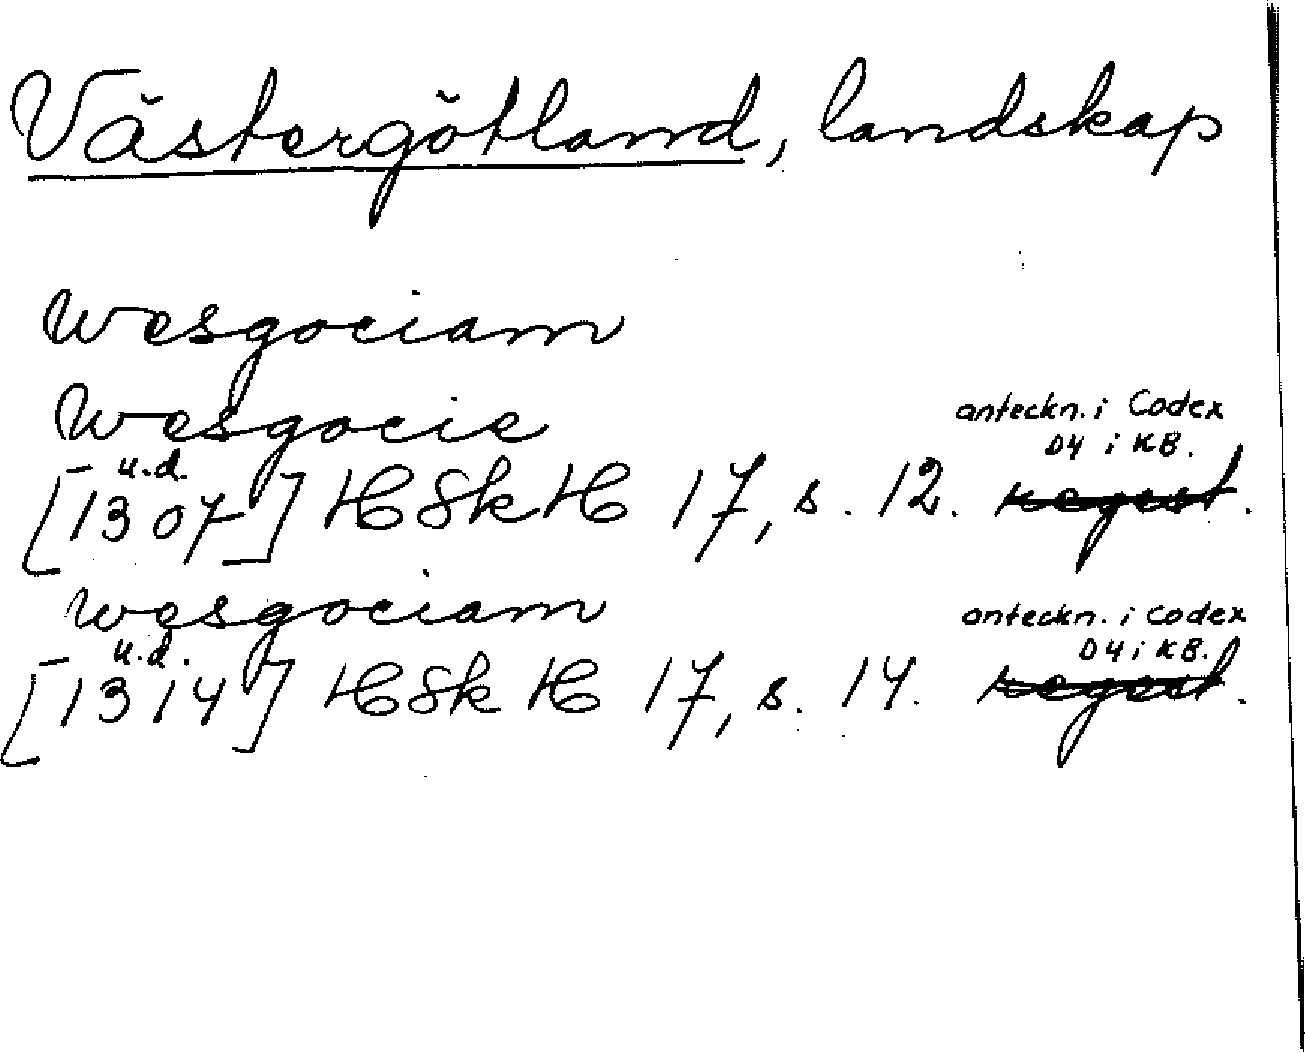 Västergötland, landskap
Wesgociam
Wesgocie
anteckn. i Codex
D4 i KB.
u.d.
[1307] HSkH 17, s. 12. regest.
Wesgociam
anteckn. i Codex
D4 i KB.
u.d.
[1314] HSkH 17, s. 14. regest.